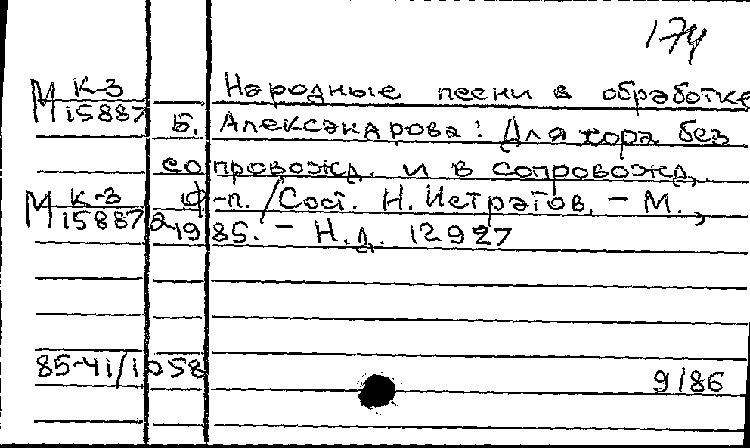 174
М К-3 Народные песни в обработке
15887 Б. Александрова: Для хора без
сопровожд. и в сопровожд.
М К-3 ф-п. / Сост. Н. Истратов. - М.,
15887а 1985. - Н.д. 12927
85-41/1058
9/86